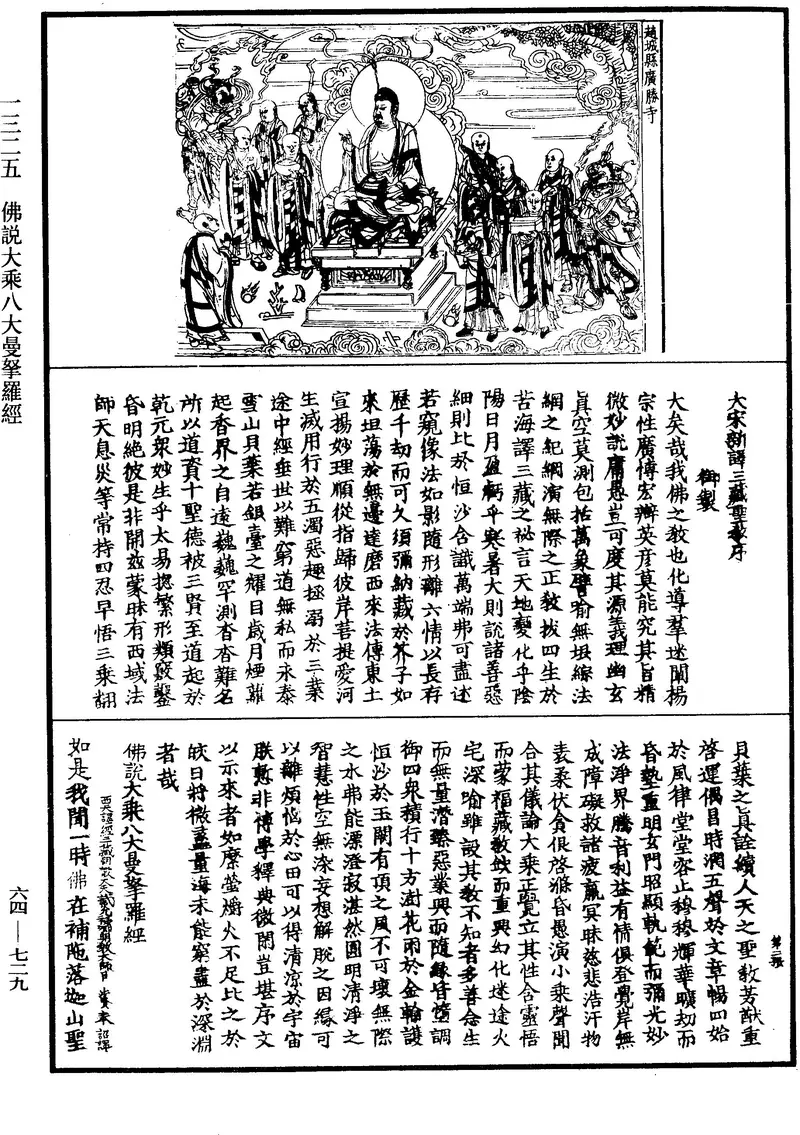 趙城縣廣勝寺
一三二五　佛説大乘八大曼拏羅經
六四—七二九
大宋新譯三藏聖教序
御製
大矣哉我佛之教也化導羣迷闡揚
宗性廣博宏辯英彦莫能究其旨精
微妙説庸愚豈可度其源義理幽玄
真空莫測包括萬象譬喻無垠綜法
網之紀綱演無際之正教拔四生於
苦海譯三藏之祕言天地變化乎陰
陽日月盈虧乎寒暑大則説諸善惡
細則比於恒沙含識萬端弗可盡述
若窺像法如影隨形離六情以長存
歷千劫而可久須彌納藏於芥子如
來坦蕩於無邊達磨西來法傳東土
宣揚妙理順從指歸彼岸菩提愛河
生滅用行於五濁惡趣拯溺於三業
途中經垂世以難窮道無私而永泰
雪山貝葉若銀臺之耀目歲月煙蘿
起香界之自遠巍巍罕測杳杳難名
所以道資十聖德被三賢至道起於
乾元衆妙生乎太易揔繁形類竅鑿
昏明絶彼是非開兹蒙昧有西域法
師天息災等常持四忍早悟三乘翻
第二張
貝葉之真詮續人天之聖教芳猷重
啓運偶昌時潤五聲於文章暢四始
於風律堂堂容止穆穆輝華曠劫而
昏墊重明玄門昭顯軌範而彌光妙
法淨界騰音利益有情俱登覺岸無
成障礙救諸疲羸冥昧慈悲浩汗物
表柔伏貪佷啓滌昏愚演小乘聲聞
合其儀論大乘正覺立其性含靈悟
而蒙福藏教缺而重興幻化迷途火
宅深喻雖設其教不知者多善念生
而無量潛臻惡業興而隨緣皆墮調
御四衆積行十方澍花雨於金輪護
恒沙於玉闕有頂之風不可壞無際
之水弗能漂澄寂湛然圓明清淨之
智慧性空無染妄想解脱之因緣可
以離煩惱於心田可以得清涼於宇宙
朕慙非博學釋典微閑豈堪序文
以示來者如縻螢爝火不足比之於
皎日將微蠡量海未能窮盡於深淵
者哉
佛説大乘八大曼拏羅經
如是我聞一時佛在補陁落迦山聖